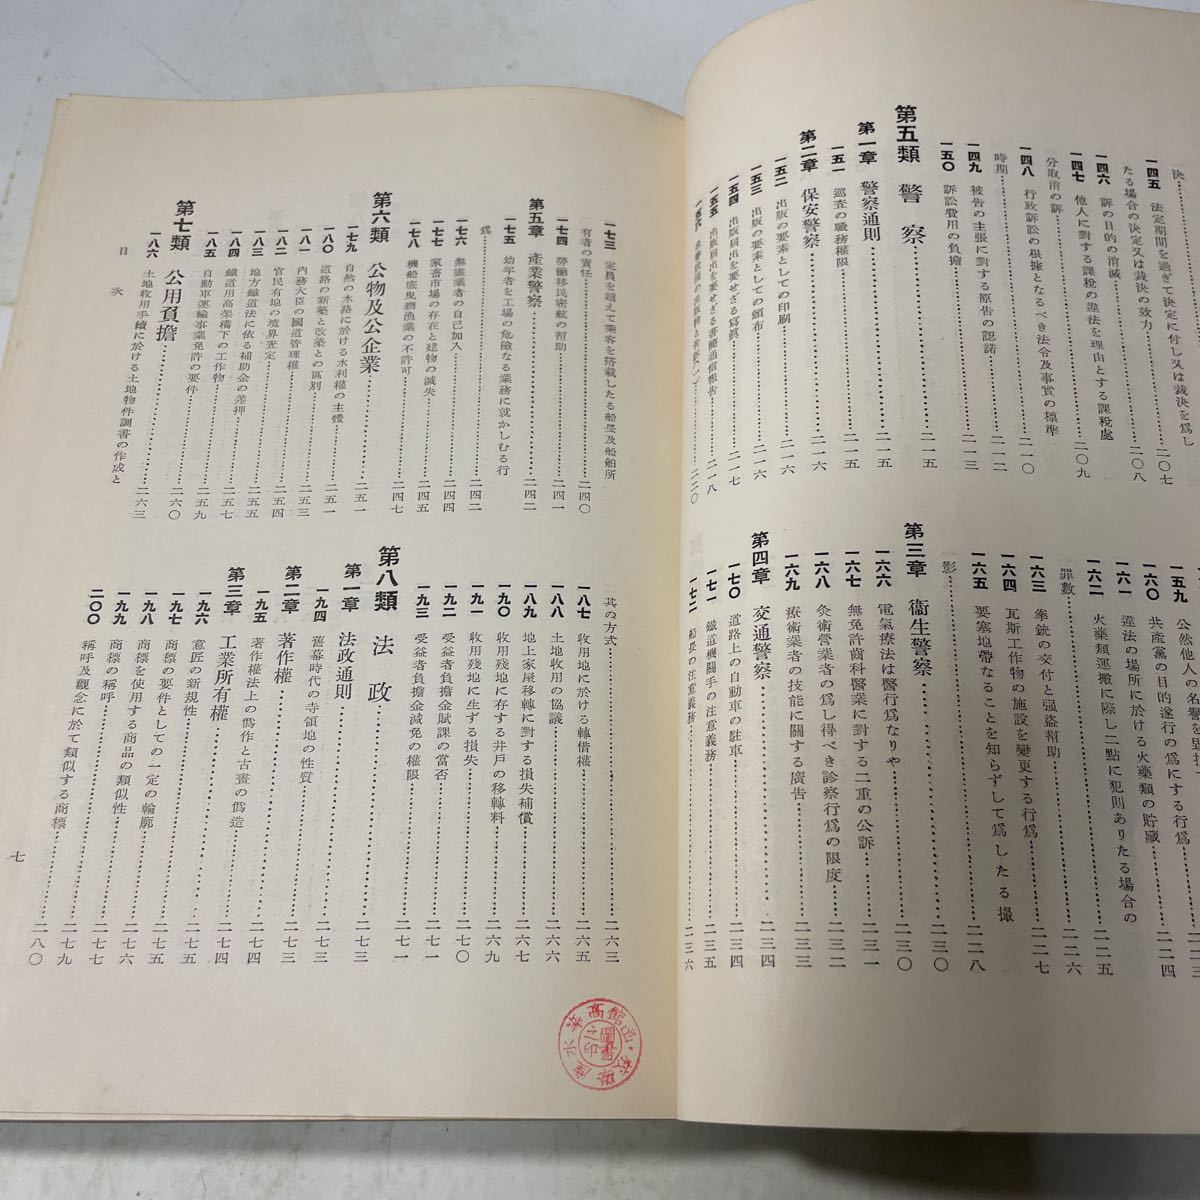 決…………
一四五　法定期間を過ぎて決定に付し又は裁決を爲し
たる場合の決定又は裁決の效力……二〇七
一四六　訴の目的の消滅……二〇八
一四七　他人に對する課税の違法を理由とする課税處
分取消の訴……二〇九
一四八　行政訴訟の根據となるべき法令及事實の標準
時期……二一〇
一四九　被告の主張に對する原告の認諾……二一三
一五〇　訴訟費用の負擔……二一五
第五類　警察……二一五
第一章　警察通則……二一五
一五一　巡査の職務權限……二一五
第二章　保安警察……二一六
一五二　出版の要素としての印刷……二一六
一五三　出版の要素としての頒布……二一六
一五四　出版屆出を要せざる寫眞……二一七
一五五　出版屆出を要せざる書簡通信報告……二一八
一五六……二二〇
一五九　公然他人の名譽を毀損……二二三
一六〇　共產黨の目的遂行の爲にする行爲……二二四
一六一　違法の場所に於ける火藥類の貯藏……二二五
一六二　火藥類運搬に際し二點に犯則ありたる場合の
罪數……二二六
一六三　拳銃の交付と强盜幇助……二二七
一六四　瓦斯工作物の施設を變更する行爲
一六五　要塞地帶なることを知らずして爲したる撮
影……二二八
第三章　衞生警察……二三〇
一六六　電氣療法は醫行爲なりや……二三〇
一六七　無免許齒科醫業に對する二重の公訴……二三一
一六八　灸術營業者の爲し得べき診察行爲の限度……二三二
一六九　療術業者の技能に關する廣告……二三三
第四章　交通警察……二三四
一七〇　道路上の自動車の駐車……二三四
一七一　鐵道機關手の注意義務……二三五
一七二　船長の注意義務……二三六
一七三　定員を超えて乘客を搭載したる船長及船舶所
有者の責任……二四〇
一七四　勞働移民密航の幇助……二四一
第五章　產業警察……二四二
一七五　幼年者を工場の危險なる業務に就かしむる行
爲……二四二
一七六　無盡業者の自己加入……二四四
一七七　家畜市場の存在と建物の滅失……二四五
一七八　機船底曳網漁業の不許可……二四七
第六類　公物及公企業……二五一
一七九　自然の水路に於ける水利權の主體……二五一
一八〇　道路の新築と改築との區別……二五一
一八一　內務大臣の國道管理權……二五三
一八二　官民有地の境界査定……二五四
一八三　地方鐵道法に依る補助金の差押……二五五
一八四　鐵道用高架橋下の工作物……二五七
一八五　自動車運輸事業免許の要件……二五九
第七類　公用負擔……二六〇
一八六　土地收用手續に於ける土地物件調書の作成と……二六三
目次
其の方式……二六三
一八七　收用地に於ける轉借權……二六五
一八八　土地收用の協議……二六六
一八九　地上家屋移轉に對する損失補償……二六七
一九〇　收用殘地に存する井戶の移轉料……二六九
一九一　收用殘地に生ずる損失……二六九
一九二　受益者負擔金賦課の當否……二七〇
一九三　受益者負擔金減免の權限……二七一
第八類　法政……二七三
第一章　法政通則……二七三
一九四　舊幕時代の寺領地の性質……二七三
第二章　著作權……二七三
一九五　著作權法上の僞作と古畫の僞造……二七四
第三章　工業所有權……二七四
一九六　意匠の新規性……二七五
一九七　商標の要件としての一定の輪廓……二七五
一九八　商標を使用する商品の類似性……二七六
一九九　商標の稱呼……二七七
二〇〇　稱呼及觀念に於て類似する商標……二七九
二八〇
七